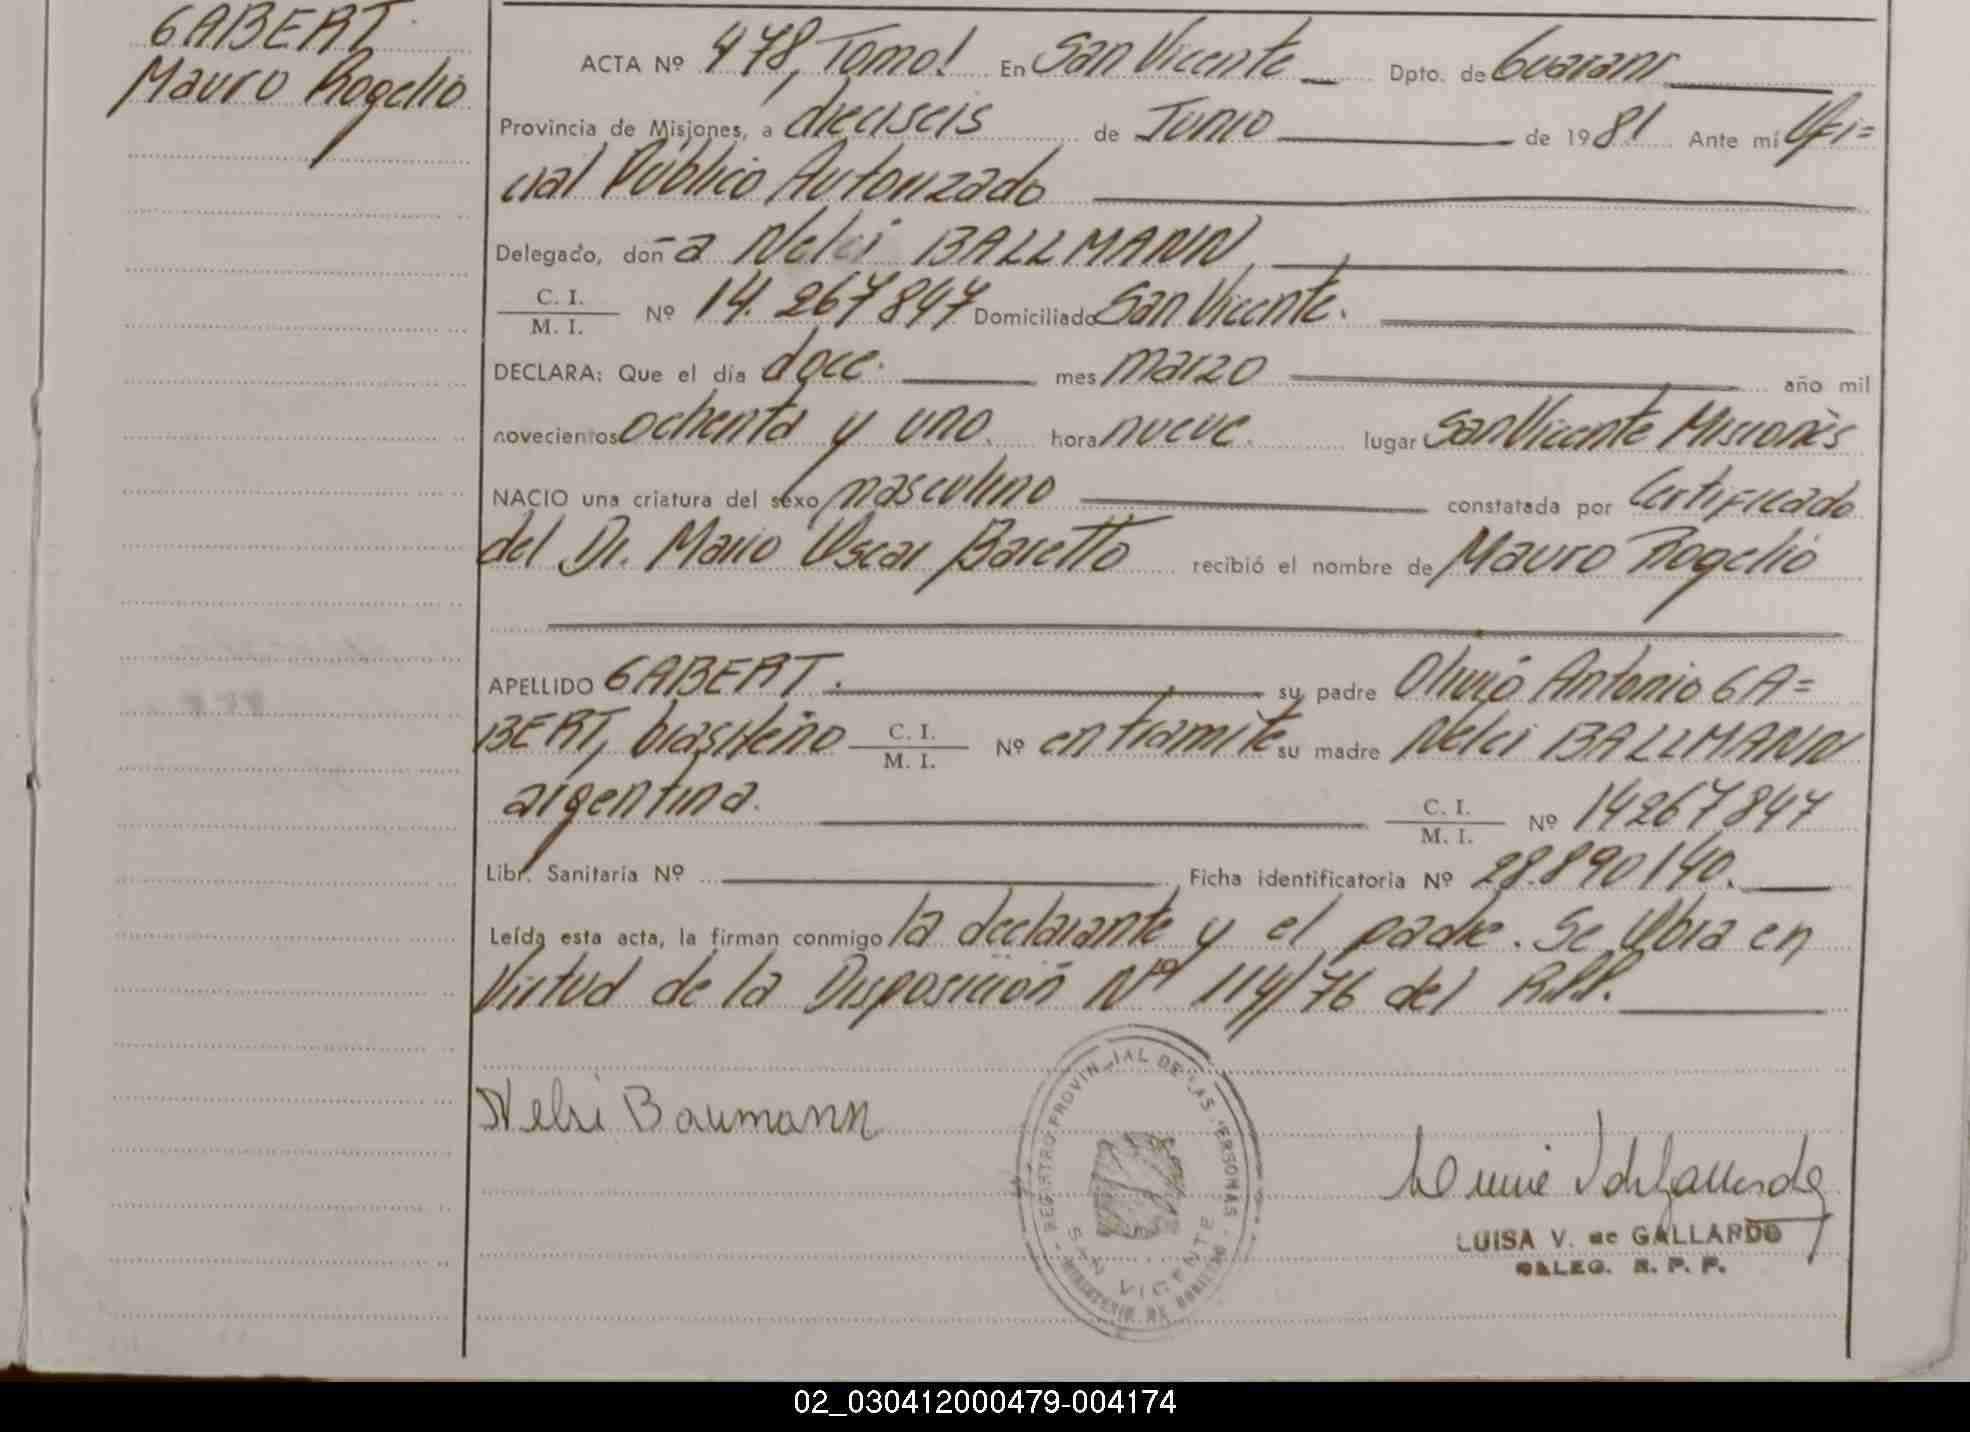 GABERT
Mauro Rogelio
ACTA Nº 478, Tomo I En San Vicente Dpto. de Guarani
Provincia de Misiones, a dieciseis de Junio de 1981 Ante mí Ofi=
cial Público Autorizado
Delegado, doña Nelci BALLMANN,
C. I. / M. I. Nº 14.267847 Domiciliado San Vicente.
DECLARA: Que el día doce. mes marzo año mil
novecientos ochenta y uno. hora nueve. lugar San Vicente Misiones
NACIO una criatura del sexo masculino constatada por Certificado
del Dr. Mario Oscar Baretto recibió el nombre de Mauro Rogelio
APELLIDO GABERT. su padre Antonio GA=
BERT, brasileño C. I. / M. I. Nº en tramite su madre Nelci BALLMANN
argentina. C. I. / M. I. Nº 14267847
Libr. Sanitaria Nº Ficha identificatoria Nº 28.890140.
Leída esta acta, la firman conmigo la declarante y el padre. Se Obra en
Virtud de la Disposición Nº 114/76 del R.P.P.
REGISTRO PROVINCIAL DE LAS PERSONAS
SAN VICENTE
Nelci Baumann
LUISA V. de GALLARDO
DELEG. R. P. P.
02_030412000479-004174